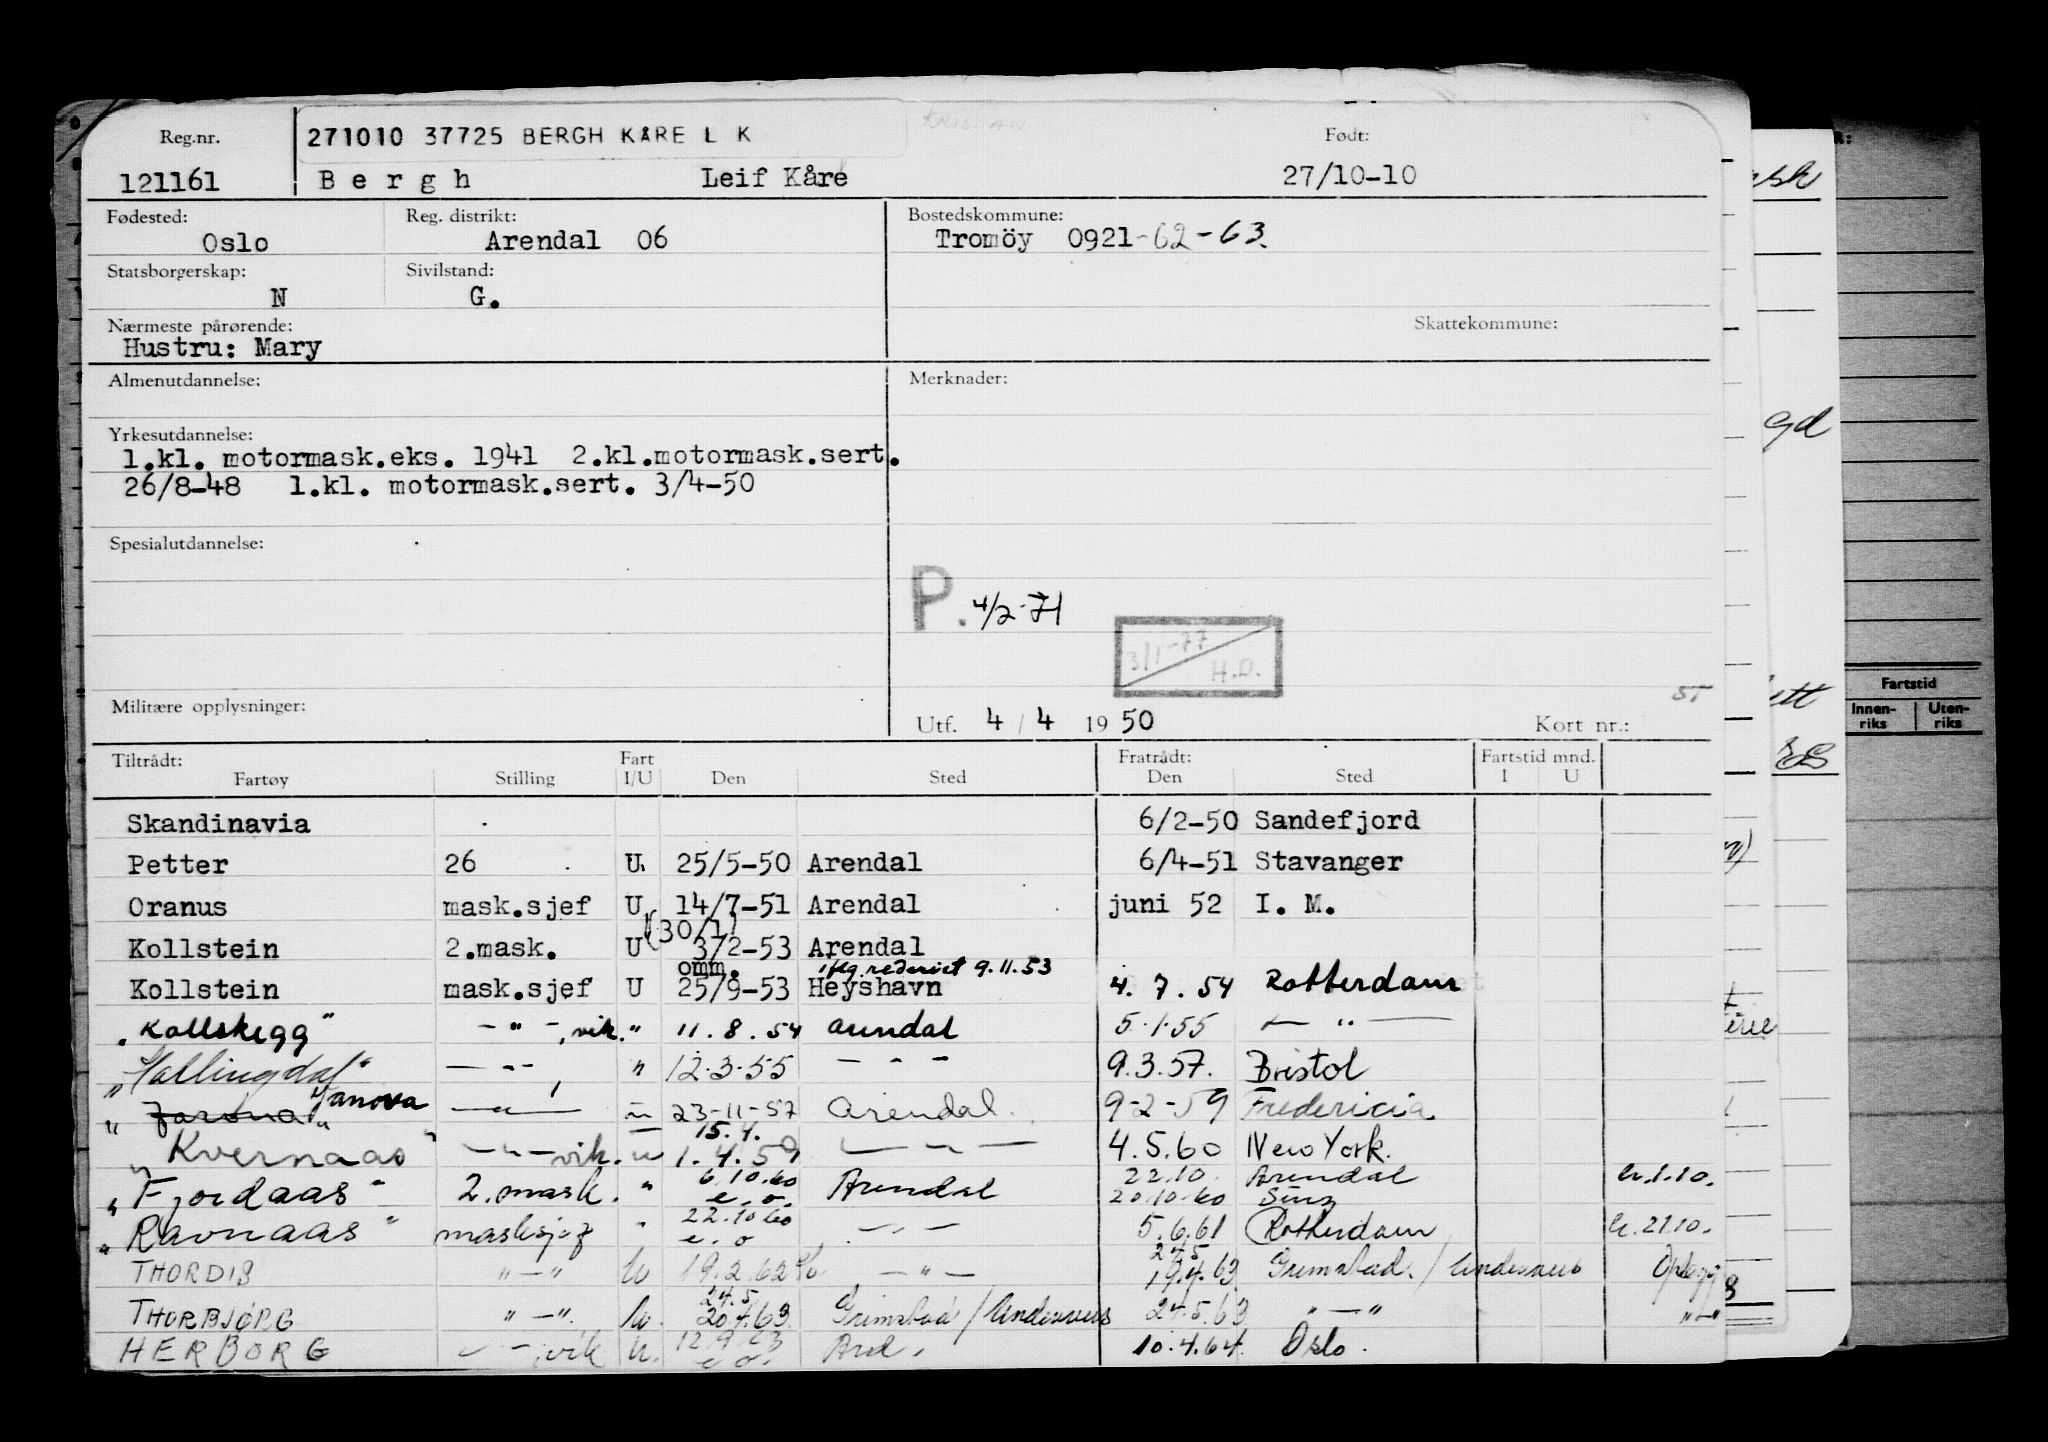 KRISTIAN
Reg.nr. 271010 37725 BERGH KÅRE L K Født:
121161 Bergh Leif Kåre 27/10-10
Fødested: Reg. distrikt: Bostedskommune:
Oslo Arendal 06 Tromöy 0921-62-63.
Statsborgerskap: Sivilstand:
N G.
Nærmeste pårørende: Skattekommune:
Hustru: Mary
Almenutdannelse: Merknader:
Yrkesutdannelse:
1.kl. motormask.eks. 1941 2.kl.motormask.sert.
26/8-48 1.kl. motormask.sert. 3/4-50
Spesialutdannelse:
P. 4/2-71
3/1-77
H.D.
Militære opplysninger:
Utf. 4 / 4 19 50 Kort nr.:
Tiltrådt: Fart Fratrådt: Fartstid mnd.
Fartøy Stilling I/U Den Sted Den Sted I U
Skandinavia 6/2-50 Sandefjord
Petter 26 U. 25/5-50 Arendal 6/4-51 Stavanger
Oranus mask.sjef U 14/7-51 Arendal juni 52 I. M.
(30/1)
Kollstein 2.mask. U 3/2-53 Arendal
omm. iflg. rederiet 9.11.53
Kollstein mask.sjef U 25/9-53 Heyshavn 4. 7. 54 Rotterdam
"Kollskegg" - " -, vik. " 11. 8. 54 Arendal 5.1.55 — " —
"Hallingdal" — " — " 12.3.55 - " - 9.3.57. Bristol
"Jarona" Janova — " — " 23-11-57 Arendal. 9-2-59 Fredericia
15.4.
"Kvernaas" — " — vik. " 1.4.59 — " — 4.5.60 New York.
6.10.60 22.10. Arendal
"Fjordaas" 2. mask. " e.o. Arendal 20.10.60 h.1.10.
22.10.60
"Ravnaas" maskisjef " e.o - " - 5.6.61 Rotterdam h.21.10.
24.5
THORDIS " — " U 19.2.62 — " — 19.4.63 Grimstad. / Underveis
24.5
THORBJØRG " — ". U. 20.4.63 Grimstad / Underveis 24.5.63 " — " " — "
HERBORG — " — vik U. 12.9.63 e.o. Ard. 10.4.64. Oslo.
Fartstid
Innen-
riks
Uten-
riks